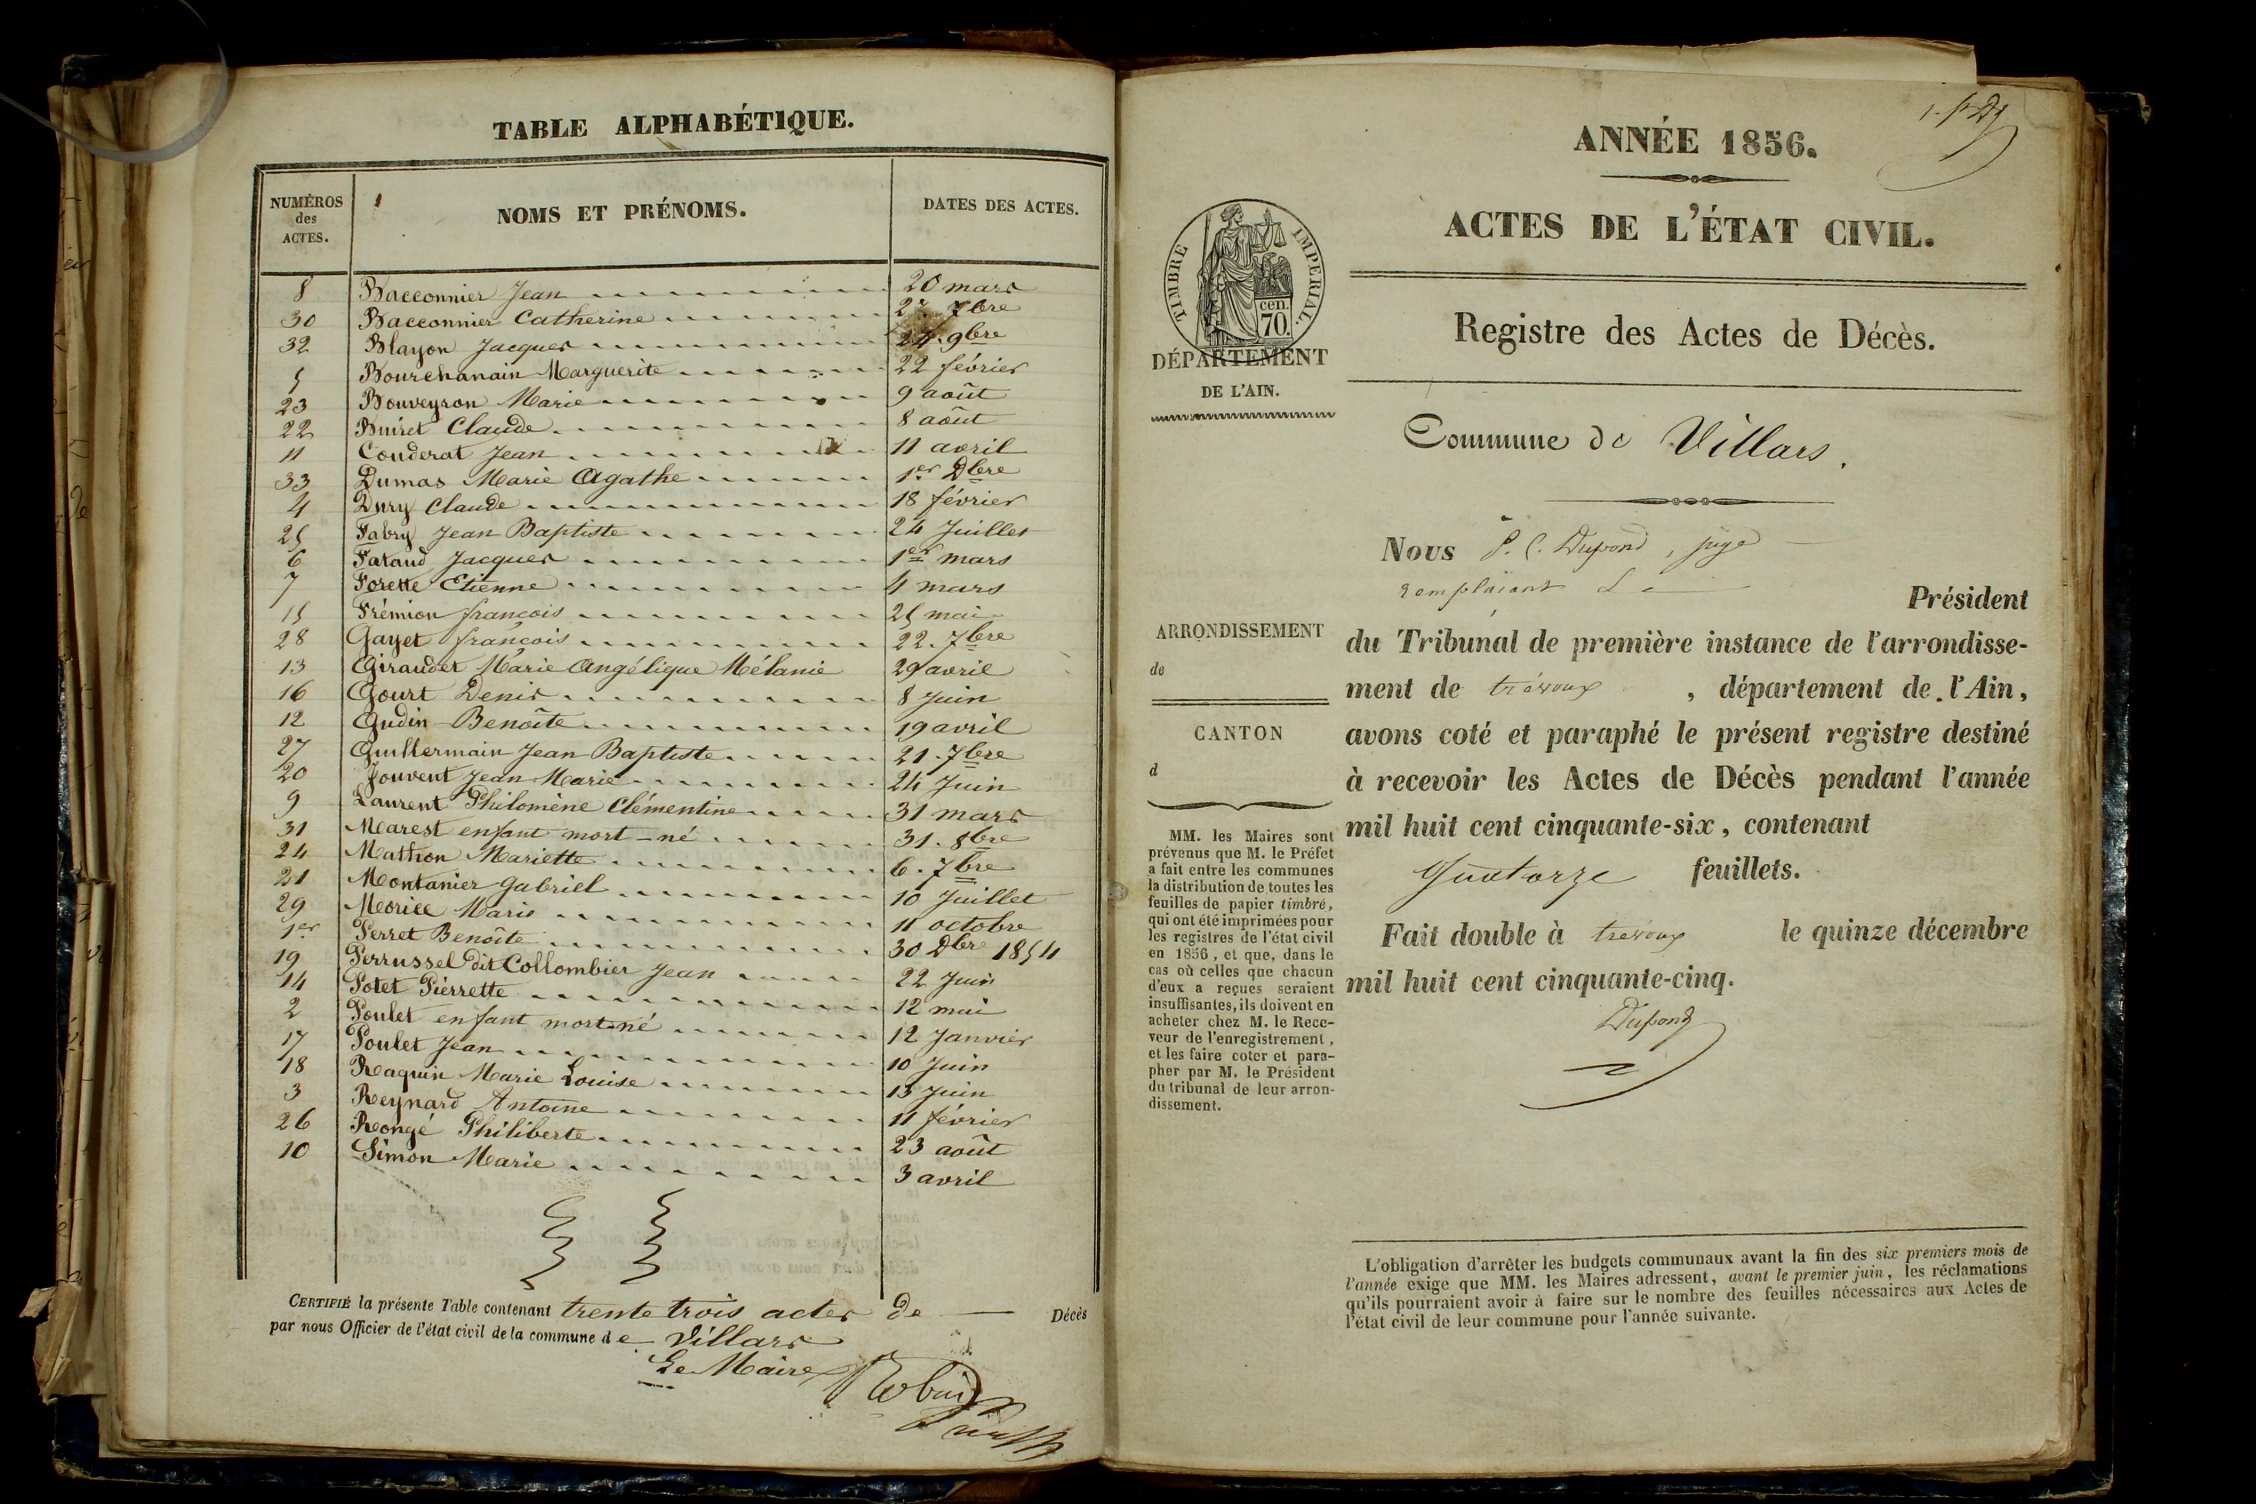 TABLE ALPHABÉTIQUE.
NUMÉROS des ACTES. NOMS ET PRÉNOMS. DATES DES ACTES.
8 Bacconnier Jean 20 mars
30 Bacconnier Catherine 7bre
32 Blayon Jacques 24. 9bre
5 Bourchanain Marguerite 22 février
23 Bouveyron Marie 9 août
22 Buiret Claude 8 août
11 Couderat Jean 11 avril
33 Dumas Marie Agathe 1er Dbre
4 Dury Claude 18 février
25 Fabry Jean Baptiste 24 Juillet
6 Fataud Jacques 1er mars
7 Forette Etienne 4 mars
15 Frémion françois 25 mai
28 Gayet françois 22. 7bre
13 Giraudet Marie Angélique Mélanie 29 avril
16 Gourt Denis 8 Juin
12 Gudin Benoîte 19 avril
27 Guillermain Jean Baptiste 21. 7bre
20 Jouvent Jean Marie 24 Juin
9 Laurent Philomène Clémentine 31 mars
31 Marest enfant mort-né 31. 8bre
24 Mathon Mariette 6. 7bre
21 Montanier Gabriel 10 Juillet
29 Morice Marie 11 octobre
1er Perret Benoîte 30 Dbre 1854
19 Perrussel dit Collombier Jean 22 Juin
14 Potet Pierrette 12 mai
2 Poulet enfant mort-né 12 Janvier
17 Poulet Jean 10 Juin
18 Raquin Marie Louise 13 Juin
3 Reynard Antoine 11 février
26 Rongé Philiberte 23 août
10 Simon Marie 3 avril
CERTIFIÉ la présente Table contenant trente trois actes de Décès
par nous Officier de l'état civil de la commune de Villars
Le Maire
Robin
ANNÉE 1856.
ACTES DE L'ÉTAT CIVIL.
TIMBRE IMPERIAL.
cen. 70.
DÉPARTEMENT
DE L'AIN.
Registre des Actes de Décès.
Commune de Villars.
Nous P. C. Dupond, juge
remplaçant Le Président
du Tribunal de première instance de l'arrondisse-
ment de trévoux, département de l'Ain,
avons coté et paraphé le présent registre destiné
à recevoir les Actes de Décès pendant l'année
mil huit cent cinquante-six, contenant
Quatorze feuillets.
Fait double à trévoux le quinze décembre
mil huit cent cinquante-cinq.
Dupond
ARRONDISSEMENT
de
CANTON
d
MM. les Maires sont
prévenus que M. le Préfet
a fait entre les communes
la distribution de toutes les
feuilles de papier timbré,
qui ont été imprimées pour
les registres de l'état civil
en 1856, et que, dans le
cas où celles que chacun
d'eux a reçues seraient
insuffisantes, ils doivent en
acheter chez M. le Rece-
veur de l'enregistrement,
et les faire coter et para-
pher par M. le Président
du tribunal de leur arron-
dissement.
L'obligation d'arrêter les budgets communaux avant la fin des six premiers mois de
l'année exige que MM. les Maires adressent, avant le premier juin, les réclamations
qu'ils pourraient avoir à faire sur le nombre des feuilles nécessaires aux Actes de
l'état civil de leur commune pour l'année suivante.